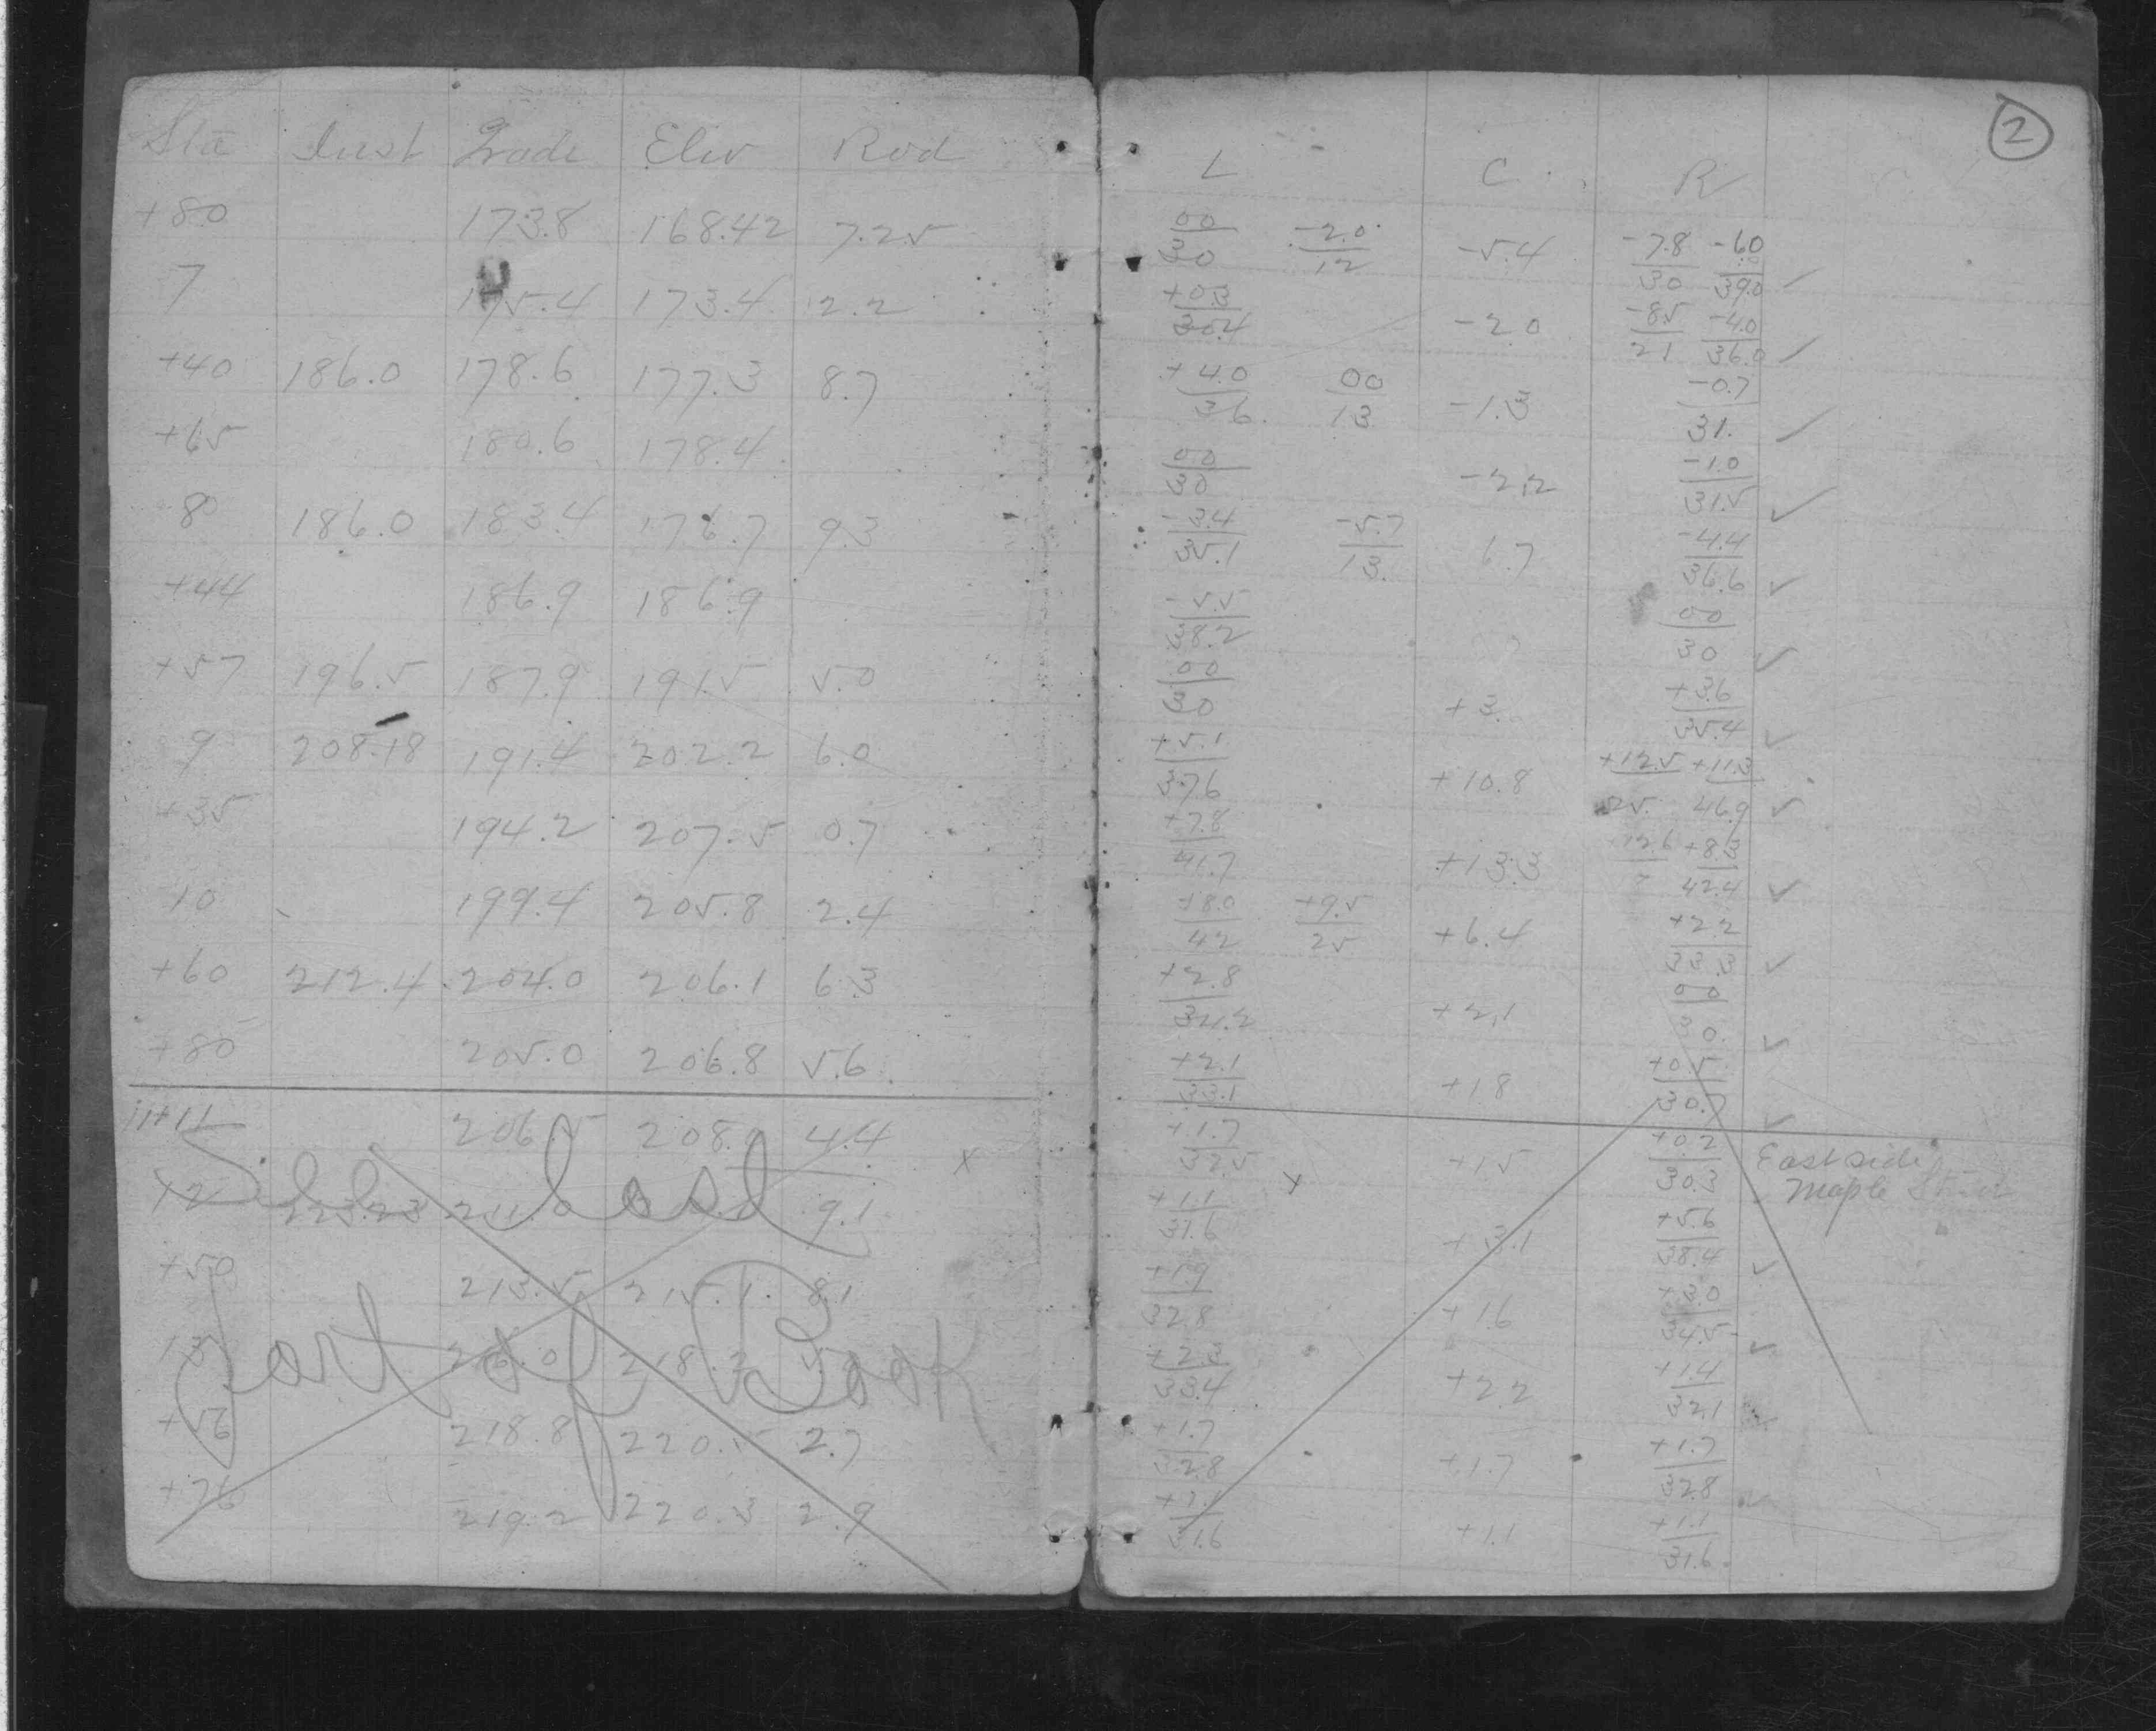 Sta Inst Grade Elev Rod
+80 173.8 168.42 7.25
7 175.4 173.4 2.2
+40 186.0 178.6 177.3 8.7
+65 180.6 178.4
8 186.0 183.4 176.7 9.3
+44 186.9 186.9
+57 196.5 187.9 191.5 5.0
9 208.18 191.4 202.2 6.0
+35 194.2 207.5 0.7
10 199.4 205.8 2.4
+60 212.4 204.0 206.1 6.3
+80 205.0 206.8 5.6
11+11 206.5 208. 4.4
+2 223.23 211. 9.1
+50 213.5 215.1 8.1
13 216.0 218.2
+56 218.8 220.5 2.7
+76 219.2 220.3 2.9
last
Part of Book
2
L C R
00/30 -2.0/12 -5.4 -7.8/30 -6.0/39.0 ✓
+0.3/30.4 -2.0 -8.5/21 -4.0/36.0 ✓
+4.0/36. 00/13 -1.3 -0.7/31. ✓
00/30 -2.2 -1.0/31.5 ✓
-3.4/35.1 -5.7/13. 6.7 -4.4/36.6 ✓
-5.5/38.2 00/30 ✓
00/30 +3. +3.6/35.4 ✓
+5.1/37.6 +10.8 +12.5/25. +11.3/46.9 ✓
+7.8/41.7 +13.3 12.6/7 +8.3/42.4 ✓
+8.0/42 +9.5/25 +6.4 +2.2/33.3 ✓
+2.8/34.2 +2.1 00/30. ✓
+2.1/33.1 +1.8 +0.5/30.7 ✓
+1.7/32.5 +1.5 +0.2/30.3 East side
Maple Street
+1.1/31.6 +3.1 +5.6/38.4 ✓
+1.9/32.8 +1.6 +3.0/34.5 ✓
+2.3/33.4 +2.2 +1.4/32.1
+1.7/32.8 +1.7 +1.7/32.8
+1.1/31.6 +1.1 +1.1/31.6